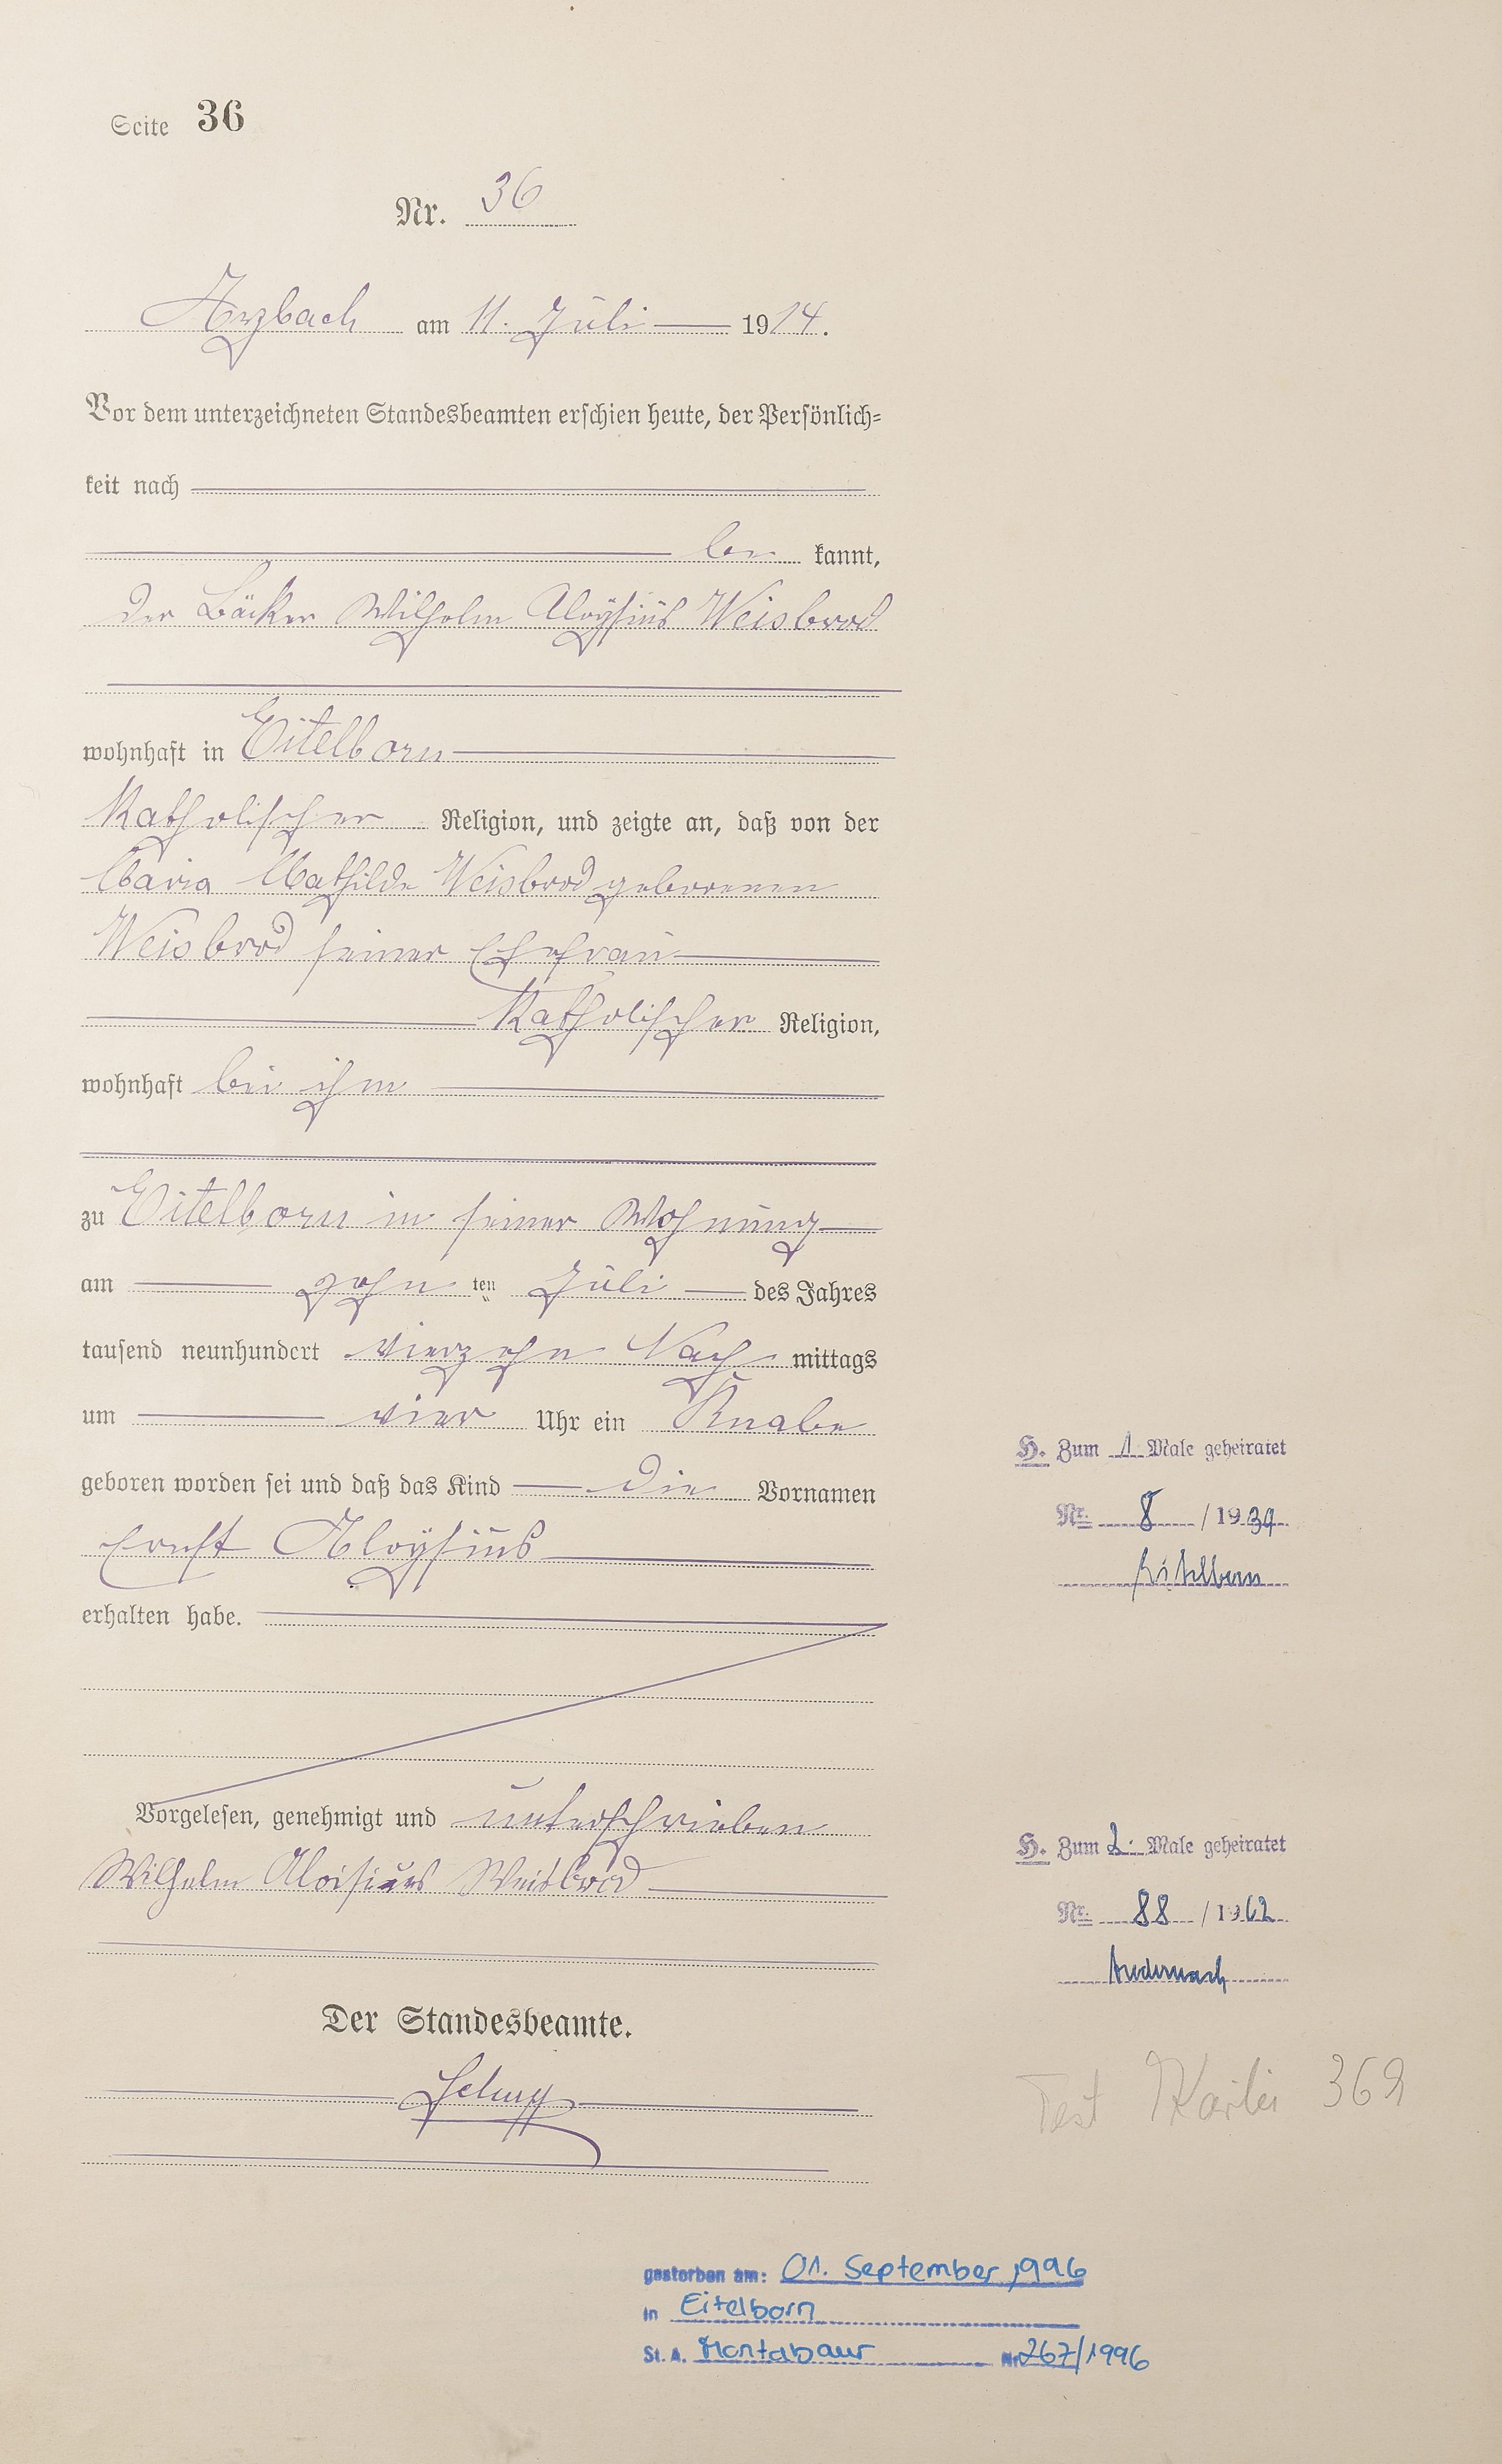 Seite 36
Nr. 36
Arzbach am 11. Juli 1914.
Vor dem unterzeichneten Standesbeamten erschien heute, der Persönlich=
keit nach
be kannt,
der Bäcker Wilhelm Aloÿsius Weisbrod
wohnhaft in Eitelborn
Katholischer Religion, und zeigte an, daß von der
Maria Mathilde Weisbrod geborenen
Weisbrod seiner Ehefrau
Katholischer Religion,
wohnhaft bei ihm
zu Eitelborn in seiner Wohnung
am zehn ten Juli des Jahres
tausend neunhundert vierzehn Nach mittags
um vier Uhr ein Knabe
geboren worden sei und daß das Kind die Vornamen
Ernst Aloÿsius
erhalten habe.
Vorgelesen, genehmigt und unterschrieben
Wilhelm Aloisius Weisbrod
Der Standesbeamte.
H. Zum 1. Male geheiratet
Nr. 8 / 1939
Eitelborn
H. Zum 2. Male geheiratet
Nr. 88 / 1962
Andernach
Test Kartei 369
gestorben am: 01. September 1996
in Eitelborn
St. A. Montabaur Nr 267/1996